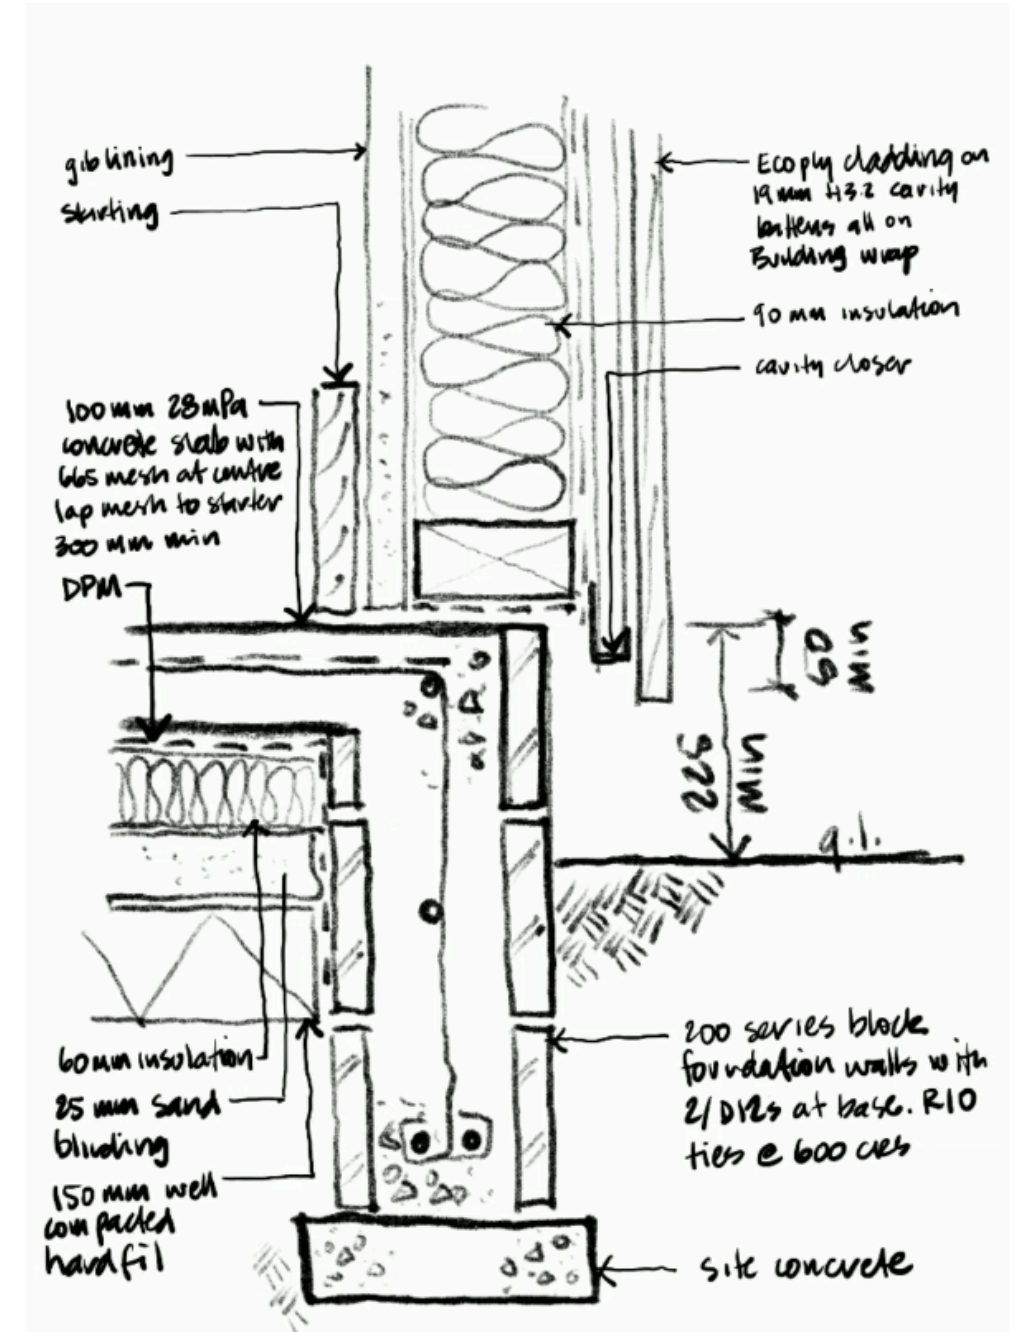 gib lining
skirting
100mm 28mPa
concrete slab with
665 mesh at centre
lap mesh to starter
300 mm min
DPM
Ecoply cladding on
19mm H3.2 cavity
battens all on
Building wrap
90 mm insulation
cavity closer
50
MIN
225
MIN
g.l.
60mm insulation
25 mm sand
blinding
150 mm well
compacted
hardfil
200 series block
foundation walls with
2/D12s at base. R10
ties @ 600 crs
site concrete